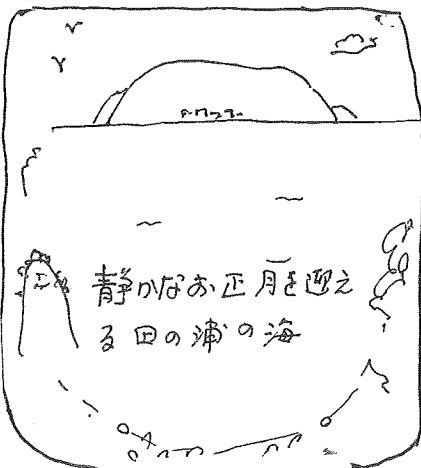 静かなお正月を迎え
る田の浦の海